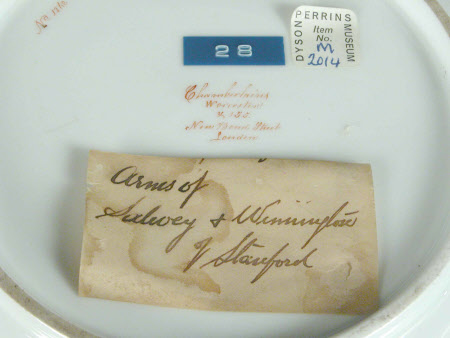 DYSON PERRINS MUSEUM
Item
No.
M
2014
28
Chamberlains
Worcester
& 155
New Bond Street
London
Arms of
Salwey & Winnington
of Stanford